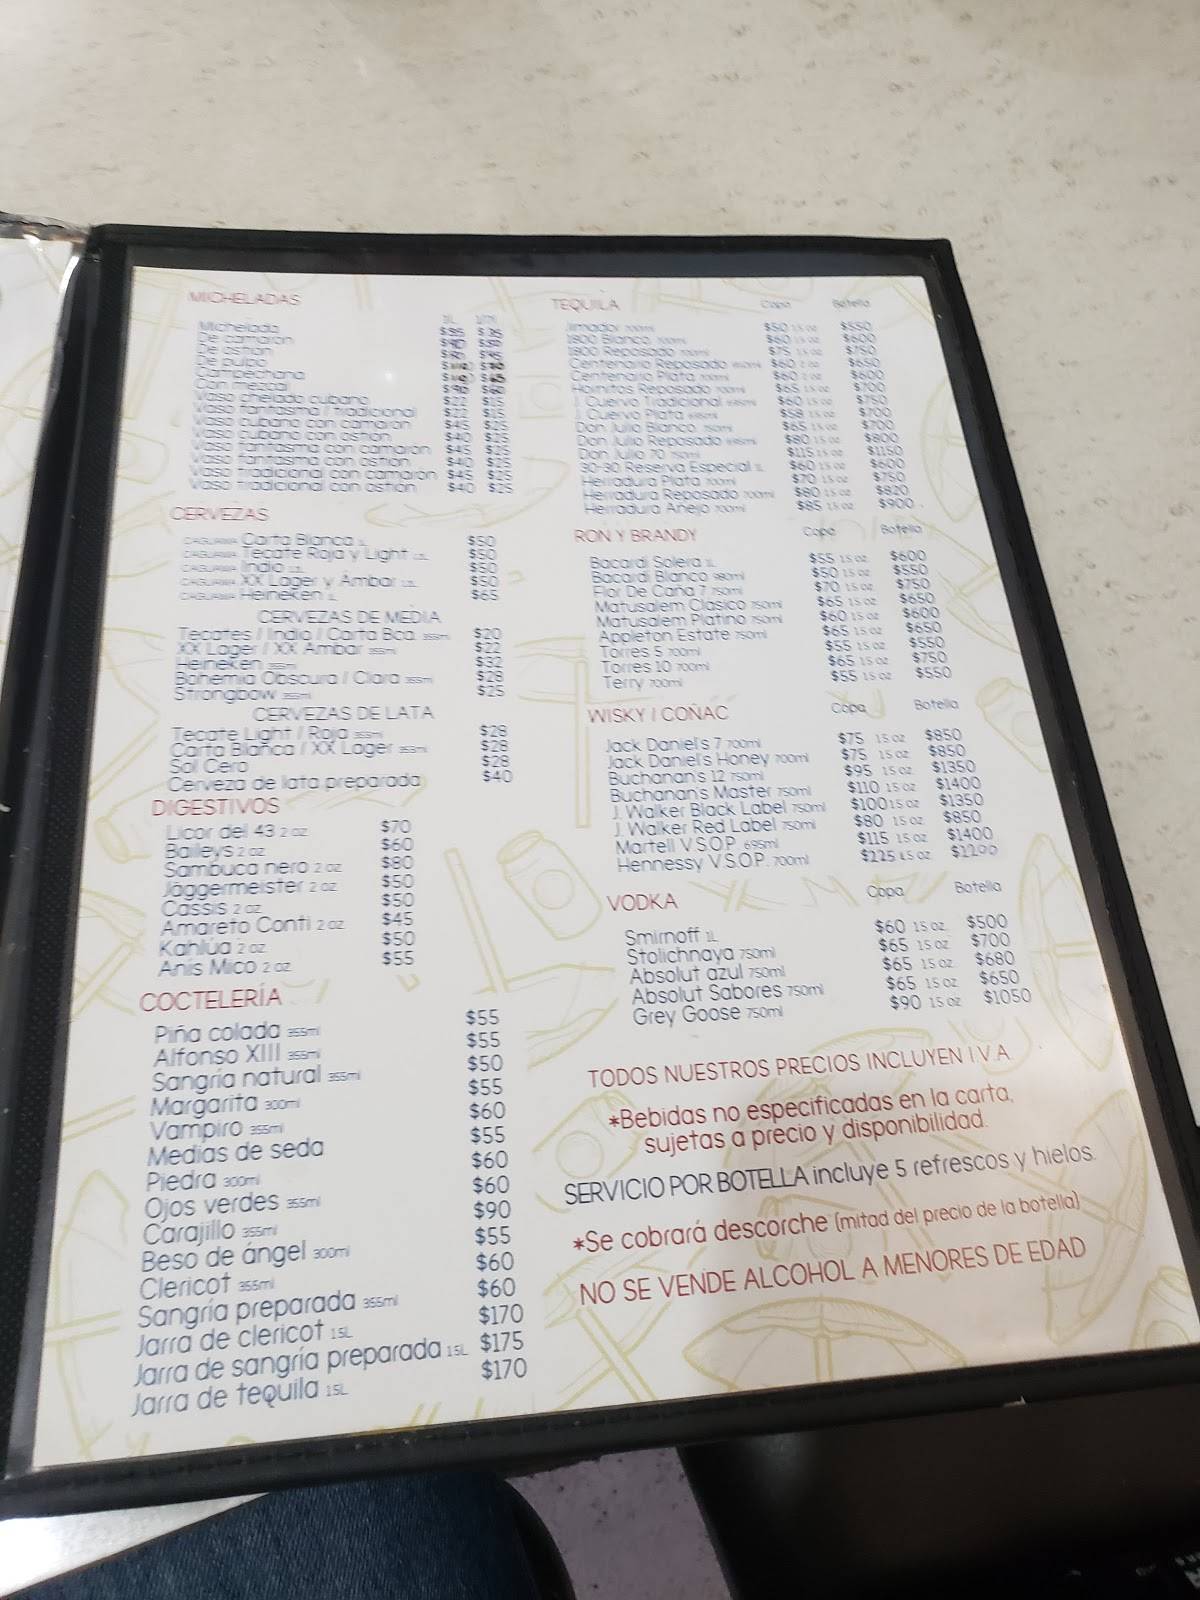 MICHELADAS
1L 1/2L
Michelada
De camaron $90
De ostion
De pulpo
Campechana
Con mezcal $90 $60
Vaso chelado cubano $22 $15
Vaso fantasma / tradicional $22 $15
Vaso cubano con camaron $45 $25
Vaso cubano con ostion $40 $25
Vaso fantasma con camaron $45 $25
Vaso fantasma con ostion $40 $25
Vaso tradicional con camaron $45 $25
Vaso tradicional con ostion $40 $25
CERVEZAS
CAGUAMA Carta Blanca 1L $50
CAGUAMA Tecate Roja y Light 1.2L $50
CAGUAMA Indio 1.2L $50
CAGUAMA XX Lager y Ámbar 1.2L $50
CAGUAMA Heineken 1L $65
CERVEZAS DE MEDIA
Tecates / Indio / Carta Bca. 355ml $20
XX Lager / XX Ambar 355ml $22
Heineken 355ml $32
Bohemia Obscura / Clara 355ml $28
Strongbow 355ml $25
CERVEZAS DE LATA
Tecate Light / Roja 355ml $28
Carta Blanca / XX Lager 355ml $28
Sol Cero $28
Cerveza de lata preparada $40
DIGESTIVOS
Licor del 43 2 oz $70
Baileys 2 oz $60
Sambuca nero 2 oz $80
Jäggermeister 2 oz $50
Cassis 2 oz $50
Amareto Conti 2 oz $45
Kahlúa 2 oz $50
Anís Mico 2 oz $55
COCTELERÍA
Piña colada 355ml $55
Alfonso XIII 355ml $55
Sangría natural 355ml $50
Margarita 300ml $55
Vampiro 355ml $60
Medias de seda $55
Piedra 300ml $60
Ojos verdes 355ml $60
Carajillo 355ml $90
Beso de ángel 300ml $55
Clericot 355ml $60
Sangría preparada 355ml $60
Jarra de clericot 1.5L $170
Jarra de sangría preparada 1.5L $175
Jarra de tequila 1.5L $170
TEQUILA Copa Botella
Jimador 700ml $50 1.5 oz $550
1800 Blanco 700ml $60 1.5 oz $600
1800 Reposado 700ml $75 1.5 oz $750
Centenario Reposado $60 $650
Centenario Plata 700ml $60 $600
Hornitos Reposado 700ml $65 1.5 oz $700
J. Cuervo Tradicional 695ml $60 1.5 oz $750
J. Cuervo Plata 695ml $58 1.5 oz $700
Don Julio Blanco 750ml $65 1.5 oz $700
Don Julio Reposado 695ml $80 1.5 oz $800
Don Julio 70 750ml $115 1.5 oz $1150
30-30 Reserva Especial 1L $60 1.5 oz $600
Herradura Plata 700ml $70 1.5 oz $750
Herradura Reposado 700ml $80 1.5 oz $820
Herradura Añejo 700ml $85 1.5 oz $900
RON Y BRANDY Copa Botella
Bacardí Solera 1L $55 1.5 oz $600
Bacardí Blanco 980ml $50 1.5 oz $550
Flor De Caña 7 750ml $70 1.5 oz $750
Matusalem Clasico 750ml $65 1.5 oz $650
Matusalem Platino 750ml $60 1.5 oz $600
Appleton Estate 750ml $65 1.5 oz $650
Torres 5 700ml $55 1.5 oz $550
Torres 10 700ml $65 1.5 oz $750
Terry 700ml $55 1.5 oz $550
WISKY / COÑAC Copa Botella
Jack Daniel's 7 700ml $75 1.5 oz $850
Jack Daniel's Honey 700ml $75 1.5 oz $850
Buchanan's 12 750ml $95 1.5 oz $1350
Buchanan's Master 750ml $110 1.5 oz $1400
J. Walker Black Label 750ml $100 1.5 oz $1350
J. Walker Red Label 750ml $80 1.5 oz $850
Martell V.S.O.P. 695ml $115 1.5 oz $1400
Hennessy V.S.O.P. 700ml $125 1.5 oz $1200
VODKA Copa Botella
Smirnoff 1L $60 1.5 oz $500
Stolichnaya 750ml $65 1.5 oz $700
Absolut azul 750ml $65 1.5 oz $680
Absolut Sabores 750ml $65 1.5 oz $650
Grey Goose 750ml $90 1.5 oz $1050
TODOS NUESTROS PRECIOS INCLUYEN I.V.A.
*Bebidas no especificadas en la carta,
sujetas a precio y disponibilidad.
SERVICIO POR BOTELLA incluye 5 refrescos y hielos.
*Se cobrará descorche (mitad del precio de la botella)
NO SE VENDE ALCOHOL A MENORES DE EDAD